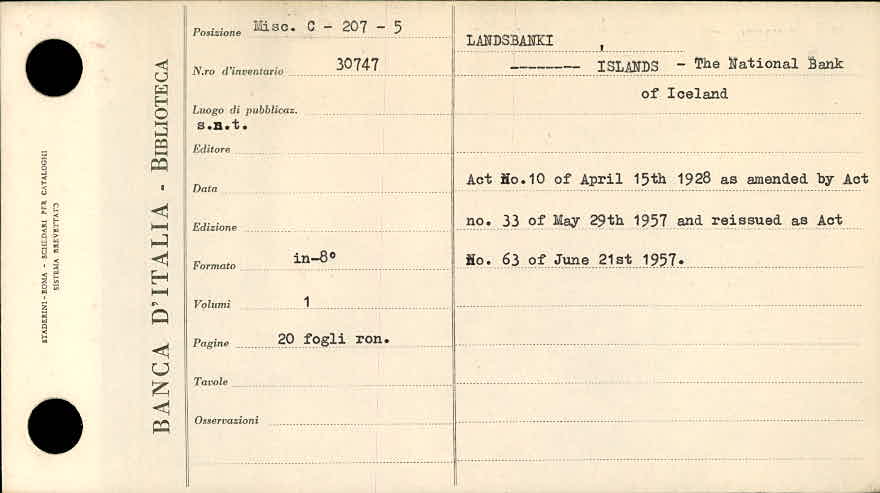 STADERINI-ROMA - SCHEDARI PER CATALOGHI
SISTEMA BREVETTATO
BANCA D'ITALIA - BIBLIOTECA
Posizione Misc. C - 207 - 5
N.ro d'inventario 30747
Luogo di pubblicaz.
s.n.t.
Editore
Data
Edizione
Formato in-8°
Volumi 1
Pagine 20 fogli ron.
Tavole
Osservazioni
LANDSBANKI ,
-------- ISLANDS - The National Bank
of Iceland
Act No.10 of April 15th 1928 as amended by Act
no. 33 of May 29th 1957 and reissued as Act
No. 63 of June 21st 1957.